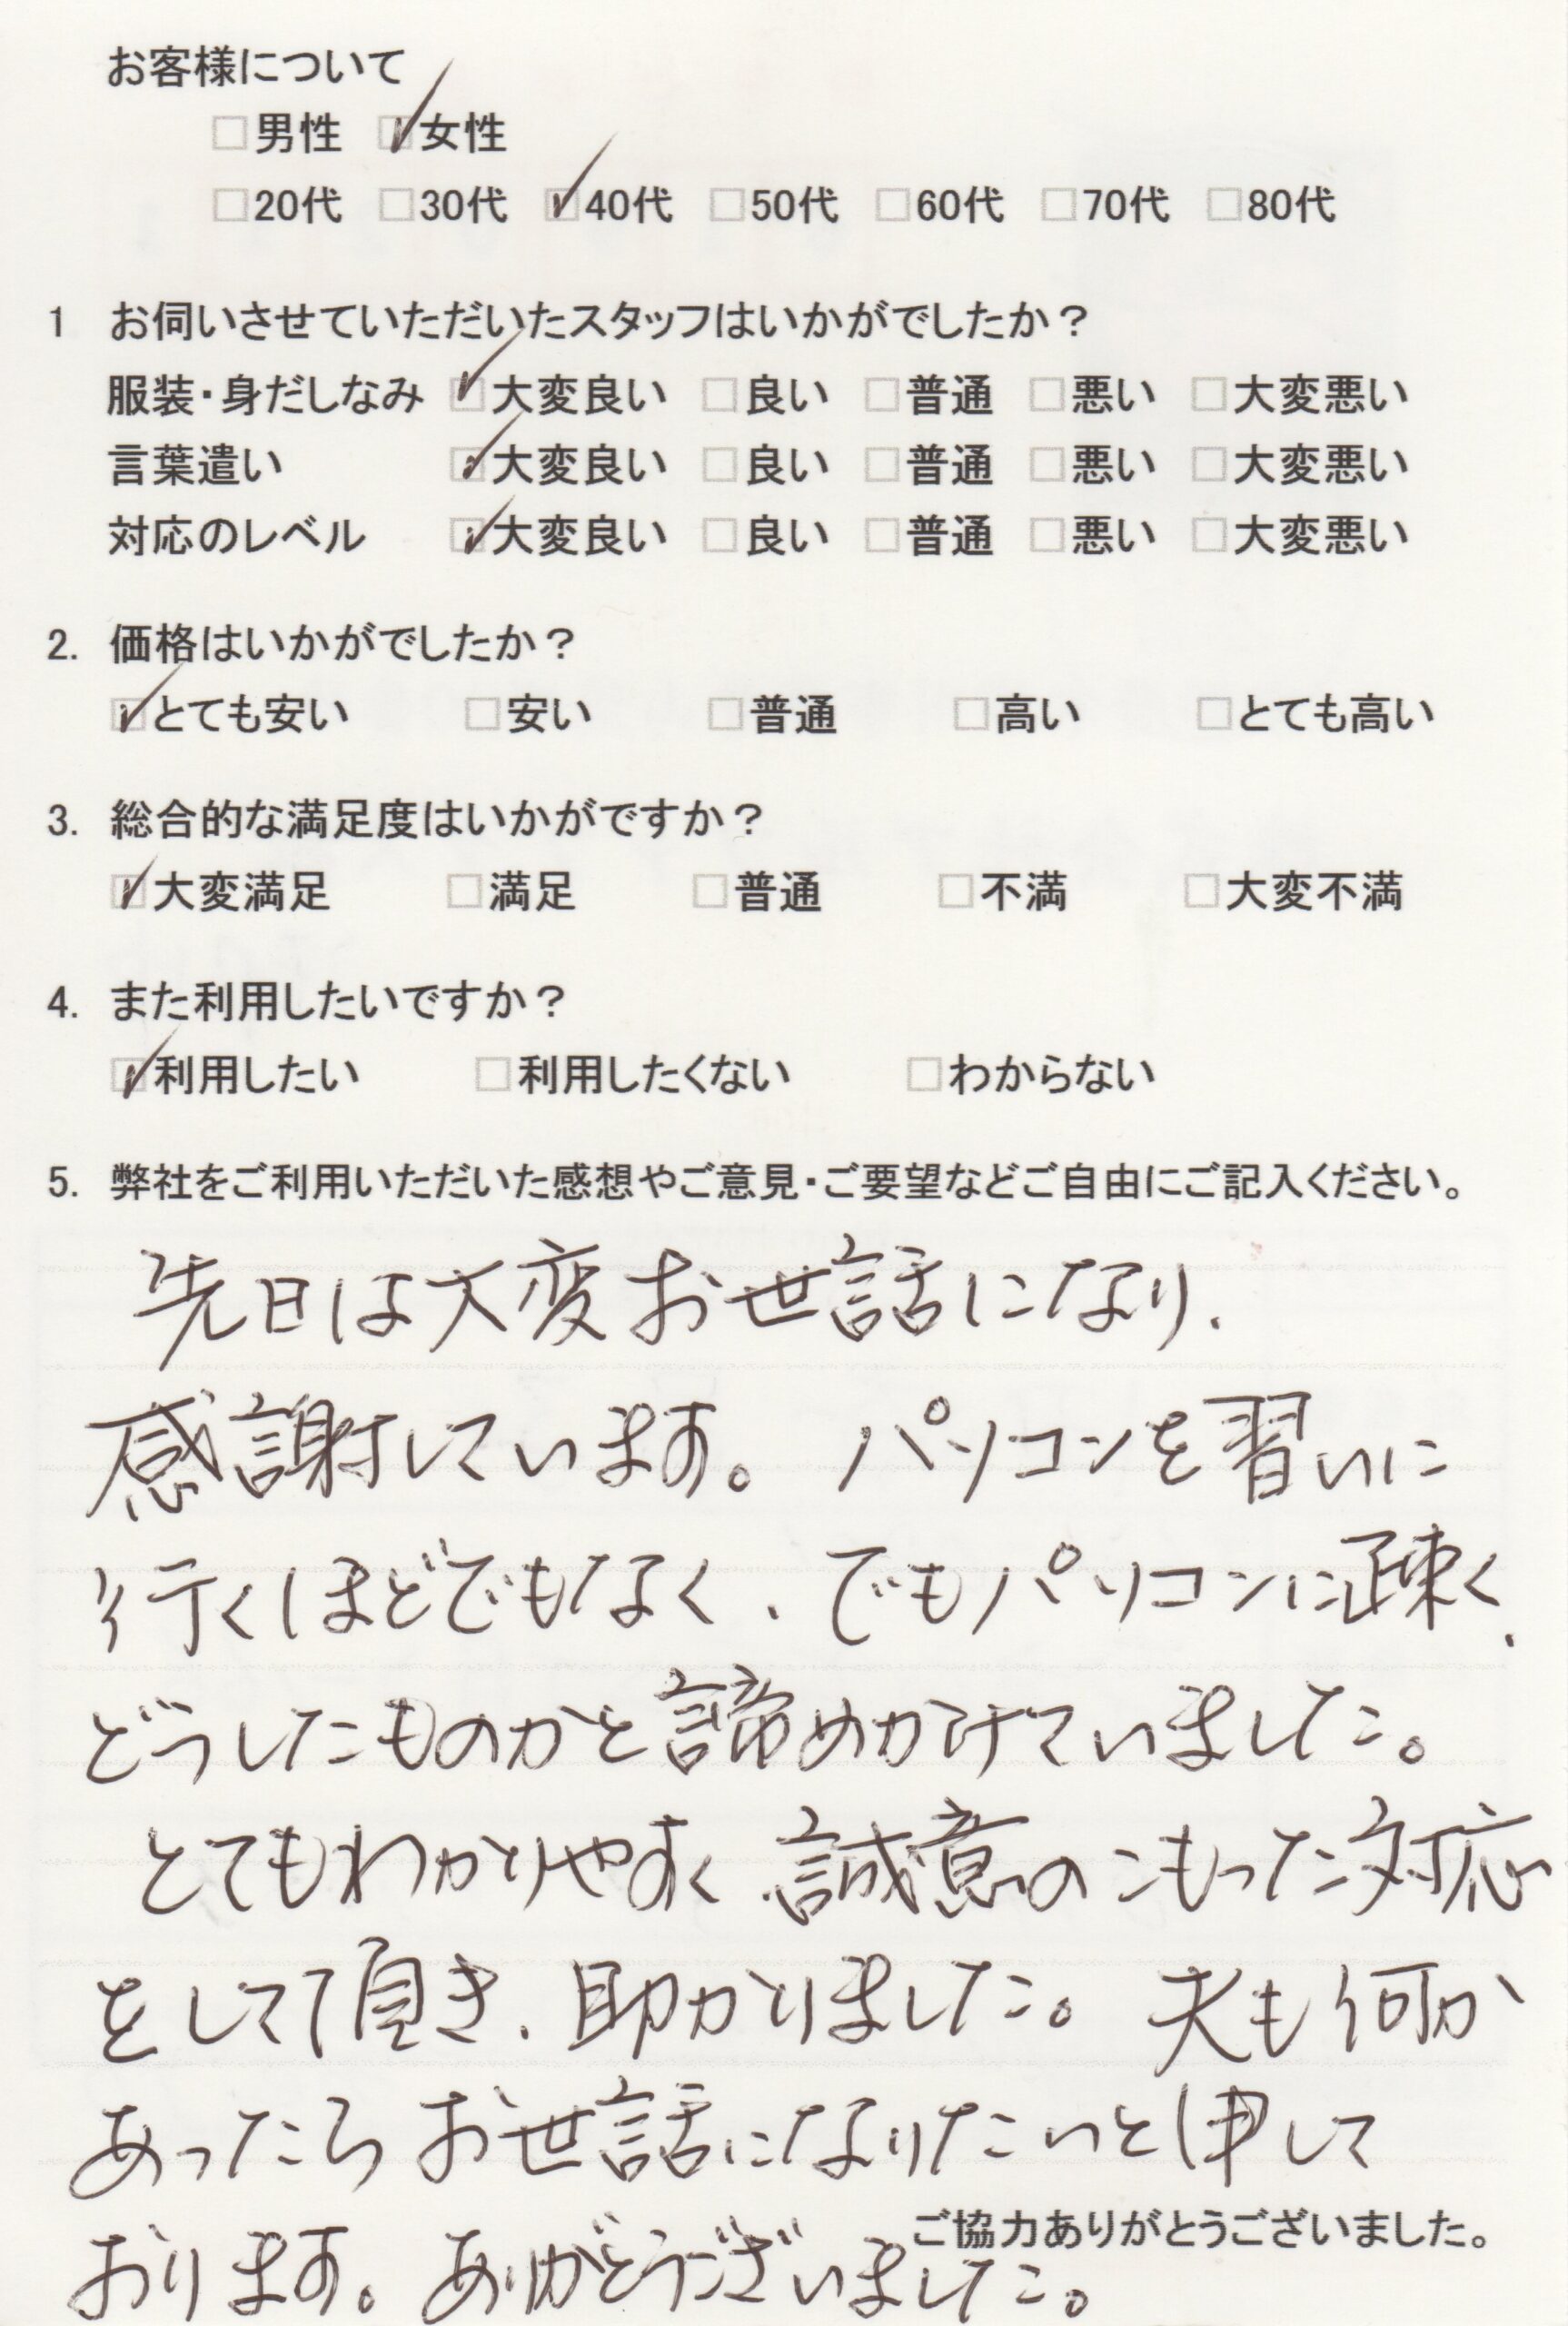 お客様について
□男性 ☑女性
□20代 □30代 ☑40代 □50代 □60代 □70代 □80代
1 お伺いさせていただいたスタッフはいかがでしたか？
服装・身だしなみ ☑大変良い □良い □普通 □悪い □大変悪い
言葉遣い ☑大変良い □良い □普通 □悪い □大変悪い
対応のレベル ☑大変良い □良い □普通 □悪い □大変悪い
2. 価格はいかがでしたか？
☑とても安い □安い □普通 □高い □とても高い
3. 総合的な満足度はいかがですか？
☑大変満足 □満足 □普通 □不満 □大変不満
4. また利用したいですか？
☑利用したい □利用したくない □わからない
5. 弊社をご利用いただいた感想やご意見・ご要望などご自由にご記入ください。
先日は大変お世話になり、
感謝しています。 パソコンを習いに
行くほどでもなく、でもパソコンに疎く、
どうしたものかと諦めかけていました。
とてもわかりやすく誠意のこもった対応
をして頂き、助かりました。 夫も何か
あったらお世話になりたいと申して
おります。ありがとうございました。
ご協力ありがとうございました。